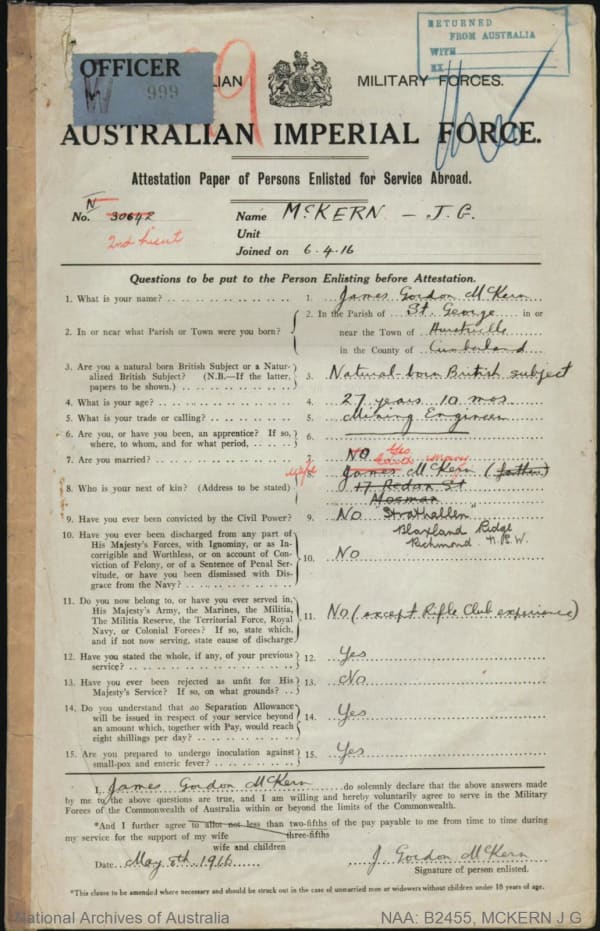 RETURNED
FROM AUSTRALIA
WITH
EX
OFFICER
999
LIAN MILITARY FORCES.
AUSTRALIAN IMPERIAL FORCE.
Attestation Paper of Persons Enlisted for Service Abroad.
No. N 30642 Name McKERN — J. G.
2nd Lieut Unit
Joined on 6.4.16
Questions to be put to the Person Enlisting before Attestation.
1. What is your name? 1. James Gordon McKern
2. In or near what Parish or Town were you born? 2. In the Parish of St. George in or
near the Town of Hurstville
in the County of Cumberland
3. Are you a natural born British Subject or a Natur-
alized British Subject? (N.B.—If the latter,
papers to be shown.) 3. Natural-born British subject
4. What is your age? 4. 27 years 10 mos
5. What is your trade or calling? 5. Mining Engineer
6. Are you, or have you been, an apprentice? If so,
where, to whom, and for what period, 6.
7. Are you married? 7. No Yes
8. Who is your next of kin? (Address to be stated) wife 8. James McKern (father)
17 Redan St
Mosman
9. Have you ever been convicted by the Civil Power? 9. No "Strathallen"
Blaxland Ridge
Richmond N.S.W.
10. Have you ever been discharged from any part of
His Majesty's Forces, with Ignominy, or as In-
corrigible and Worthless, or on account of Con-
viction of Felony, or of a Sentence of Penal Ser-
vitude, or have you been dismissed with Dis-
grace from the Navy? 10. No
11. Do you now belong to, or have you ever served in,
His Majesty's Army, the Marines, the Militia,
The Militia Reserve, the Territorial Force, Royal
Navy, or Colonial Forces? If so, state which,
and if not now serving, state cause of discharge 11. No (except Rifle Club experience)
12. Have you stated the whole, if any, of your previous
service? 12. Yes
13. Have you ever been rejected as unfit for His
Majesty's Service? If so, on what grounds? 13. No
14. Do you understand that no Separation Allowance
will be issued in respect of your service beyond
an amount which, together with Pay, would reach
eight shillings per day? 14. Yes
15. Are you prepared to undergo inoculation against
small-pox and enteric fever? 15. Yes
I, James Gordon McKern do solemnly declare that the above answers made
by me to the above questions are true, and I am willing and hereby voluntarily agree to serve in the Military
Forces of the Commonwealth of Australia within or beyond the limits of the Commonwealth.
*And I further agree to allot not less than two-fifths of the pay payable to me from time to time during
three-fifths
my service for the support of my wife
wife and children
Date May 5th 1916 J. Gordon McKern
Signature of person enlisted.
*This clause to be amended where necessary and should be struck out in the case of unmarried men or widowers without children under 18 years of age.
National Archives of Australia NAA: B2455, MCKERN J G